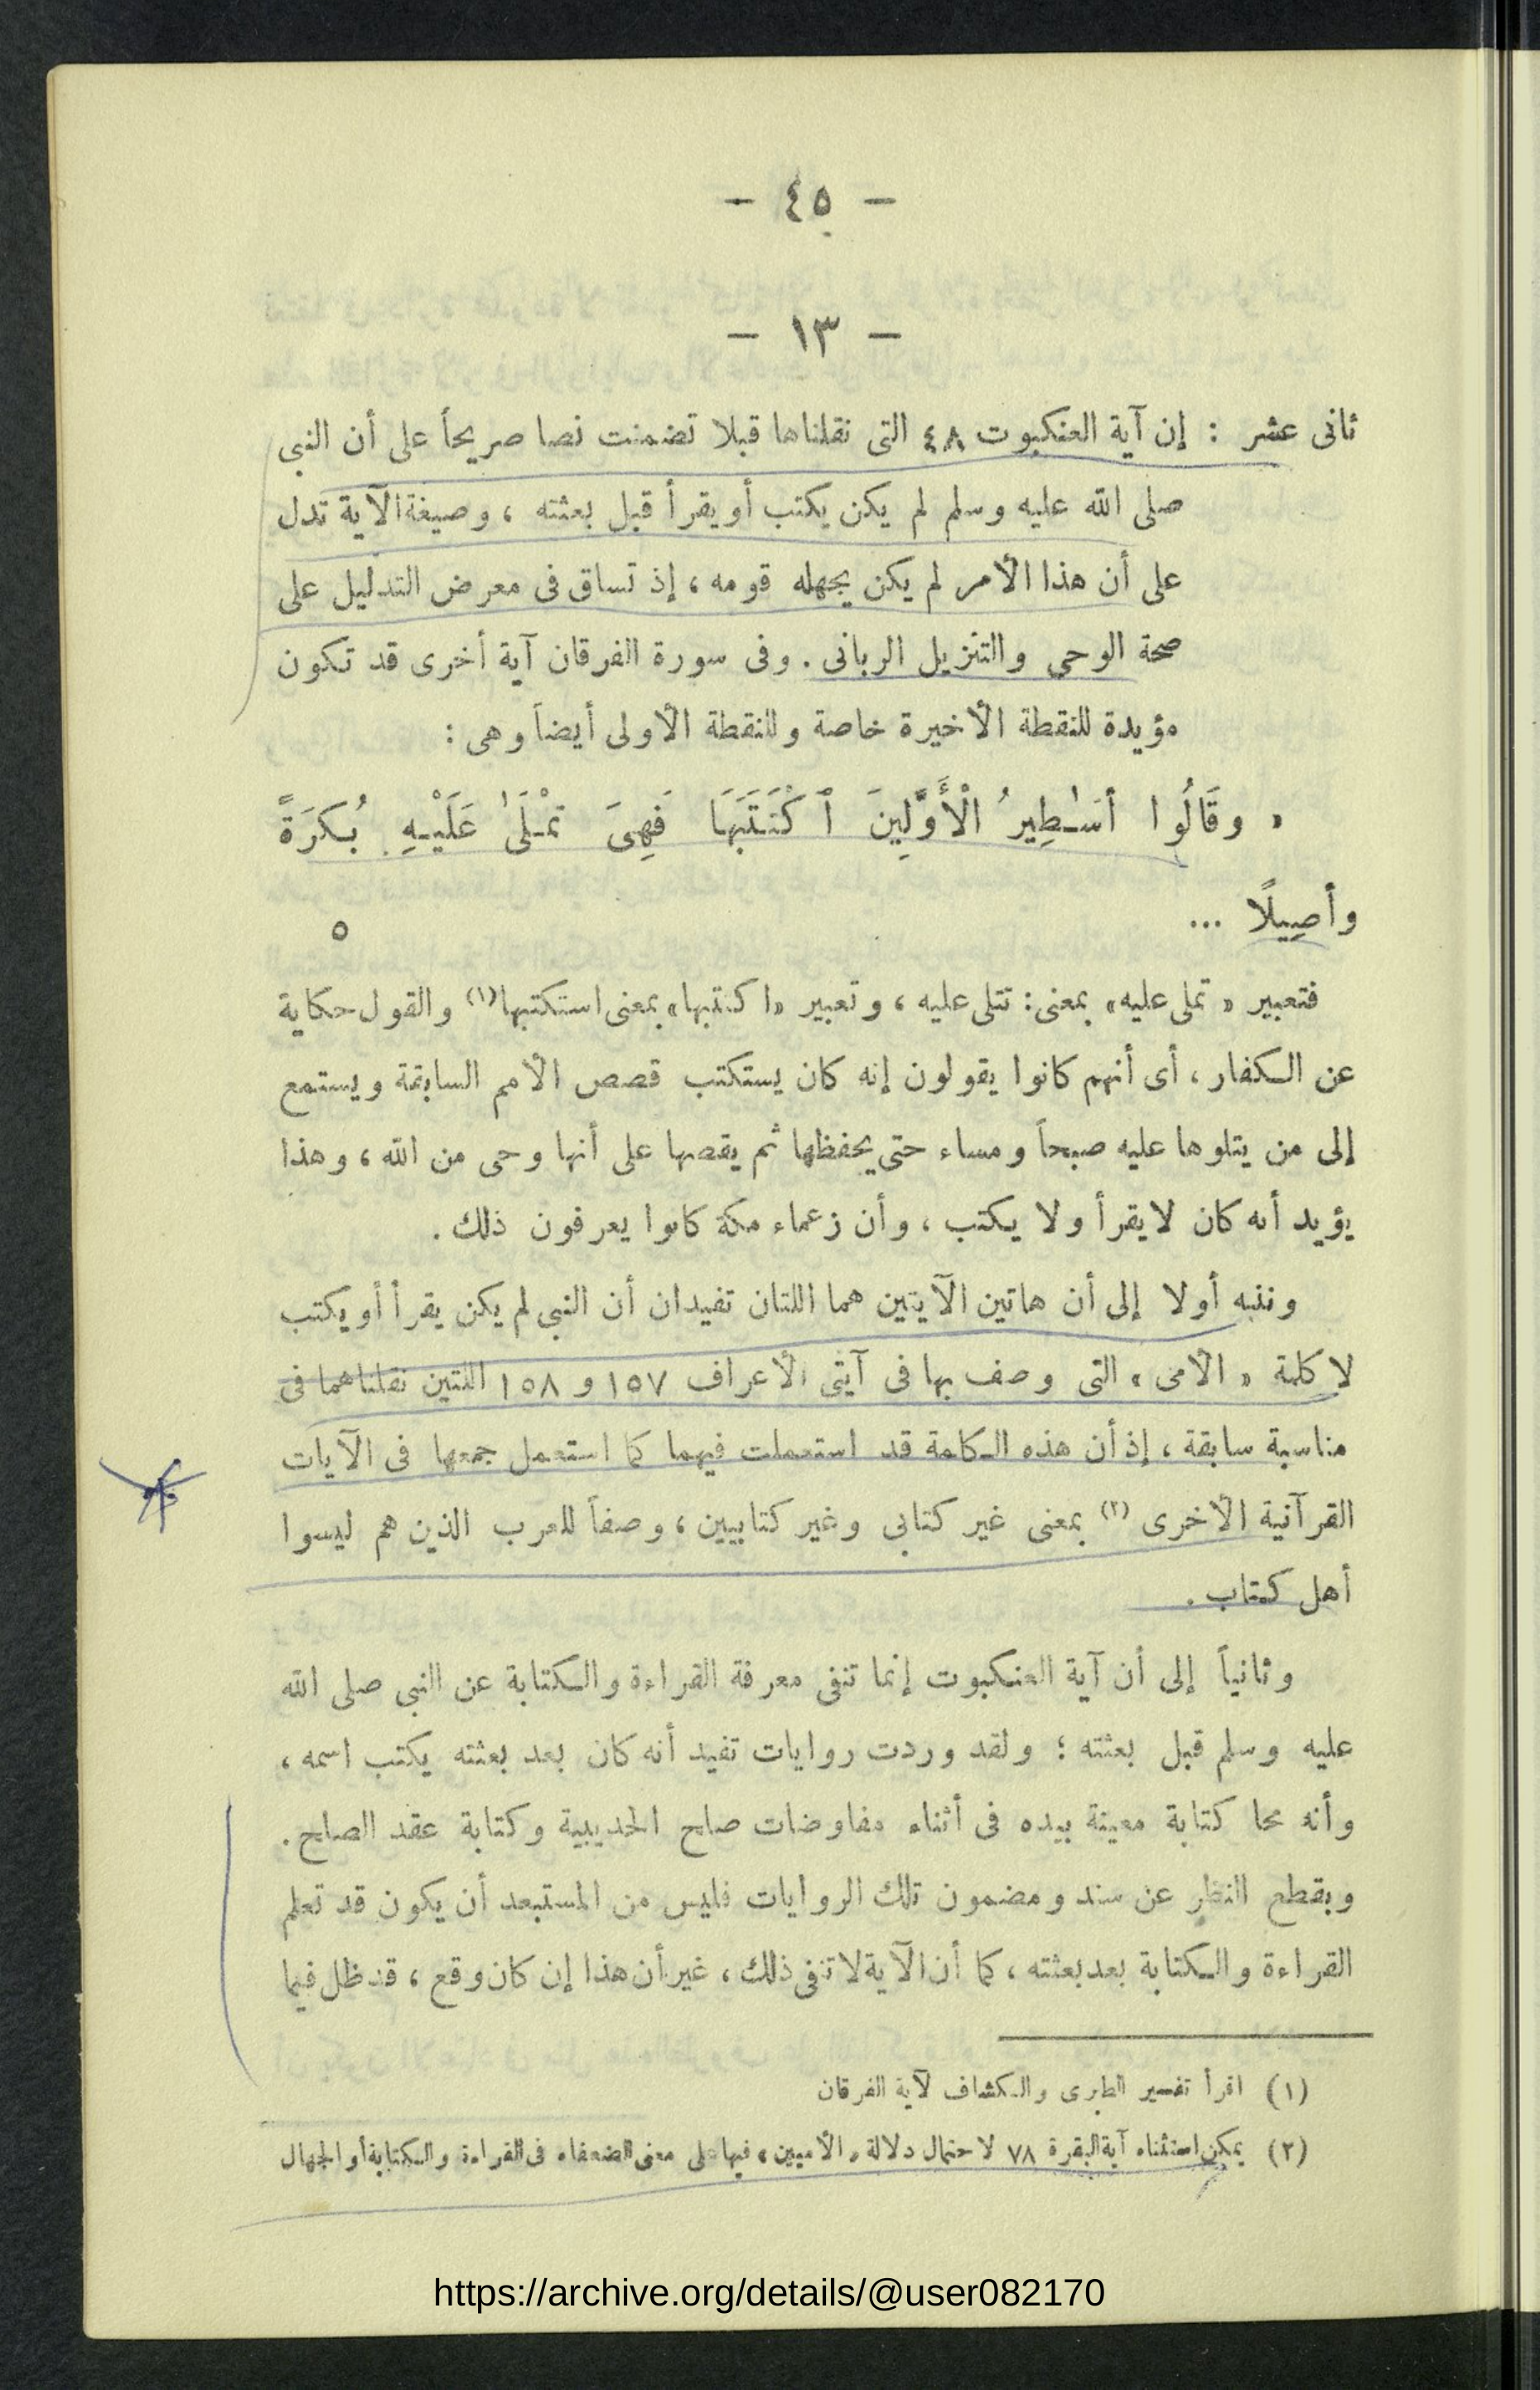 – ٤٥ –
– ١٣ –
ثانى عشر : إن آية العنكبوت ٤٨ التى نقلناها قبلا تضمنت نصا صريحاً على أن النبى
صلى الله عليه وسلم لم يكن يكتب أو يقرأ قبل بعثته ، وصيغة الآية تدل
على أن هذا الأمر لم يكن يجهله قومه ، إذ تساق فى معرض التدليل على
صحة الوحى والتنزيل الربانى . وفى سورة الفرقان آية أخرى قد تكون
مؤيدة للنقطة الأخيرة خاصة وللنقطة الأولى أيضاً وهى :
« وقَالُوا أَسَـٰطِيرُ الْأَوَّلِينَ ٱكْتَتَبَهَا فَهِىَ تُمْلَىٰ عَلَيْهِ بُكرَةً
وأصِيلًا ... ٥
فتعبير « تملى عليه » بمعنى : تتلى عليه ، وتعبير « اكتتبها » بمعنى استكتبها (١) والقول حكاية
عن الكفار ، أى أنهم كانوا يقولون إنه كان يستكتب قصص الأمم السابقة ويستمع
إلى من يتلوها عليه صبحاً ومساء حتى يحفظها ثم يقصها على أنها وحى من الله ، وهذا
يؤيد أنه كان لا يقرأ ولا يكتب ، وأن زعماء مكة كانوا يعرفون ذلك .
وننبه أولا إلى أن هاتين الآيتين هما اللتان تفيدان أن النبى لم يكن يقرأ أو يكتب
لا كلمة « الأمى » التى وصف بها فى آيتى الأعراف ١٥٧ و ١٥٨ اللتين نقلناهما فى
مناسبة سابقة ، إذ أن هذه الكلمة قد استعملت فيهما كما استعمل جمعها فى الآيات
القرآنية الأخرى (٢) بمعنى غير كتابى وغير كتابيين ، وصفاً للعرب الذين هم ليسوا
أهل كتاب .
وثانياً إلى أن آية العنكبوت إنما تنفى معرفة القراءة والكتابة عن النبى صلى الله
عليه وسلم قبل بعثته ؛ ولقد وردت روايات تفيد أنه كان بعد بعثته يكتب اسمه ،
وأنه محا كتابة معينة بيده فى أثناء مفاوضات صلح الحديبية وكتابة عقد الصلح .
وبقطع النظر عن سند ومضمون تلك الروايات فليس من المستبعد أن يكون قد تعلم
القراءة والكتابة بعد بعثته ، كما أن الآية لا تنفى ذلك ، غير أن هذا إن كان وقع ، قد ظل فيما
(١) اقرأ تفسير الطبرى والكشاف لآية الفرقان
(٢) يمكن استثناء آية البقرة ٧٨ لاحتمال دلالة « الأميين » فيها على معنى الضعفاء فى القراءة والكتابة أو الجهال
https://archive.org/details/@user082170